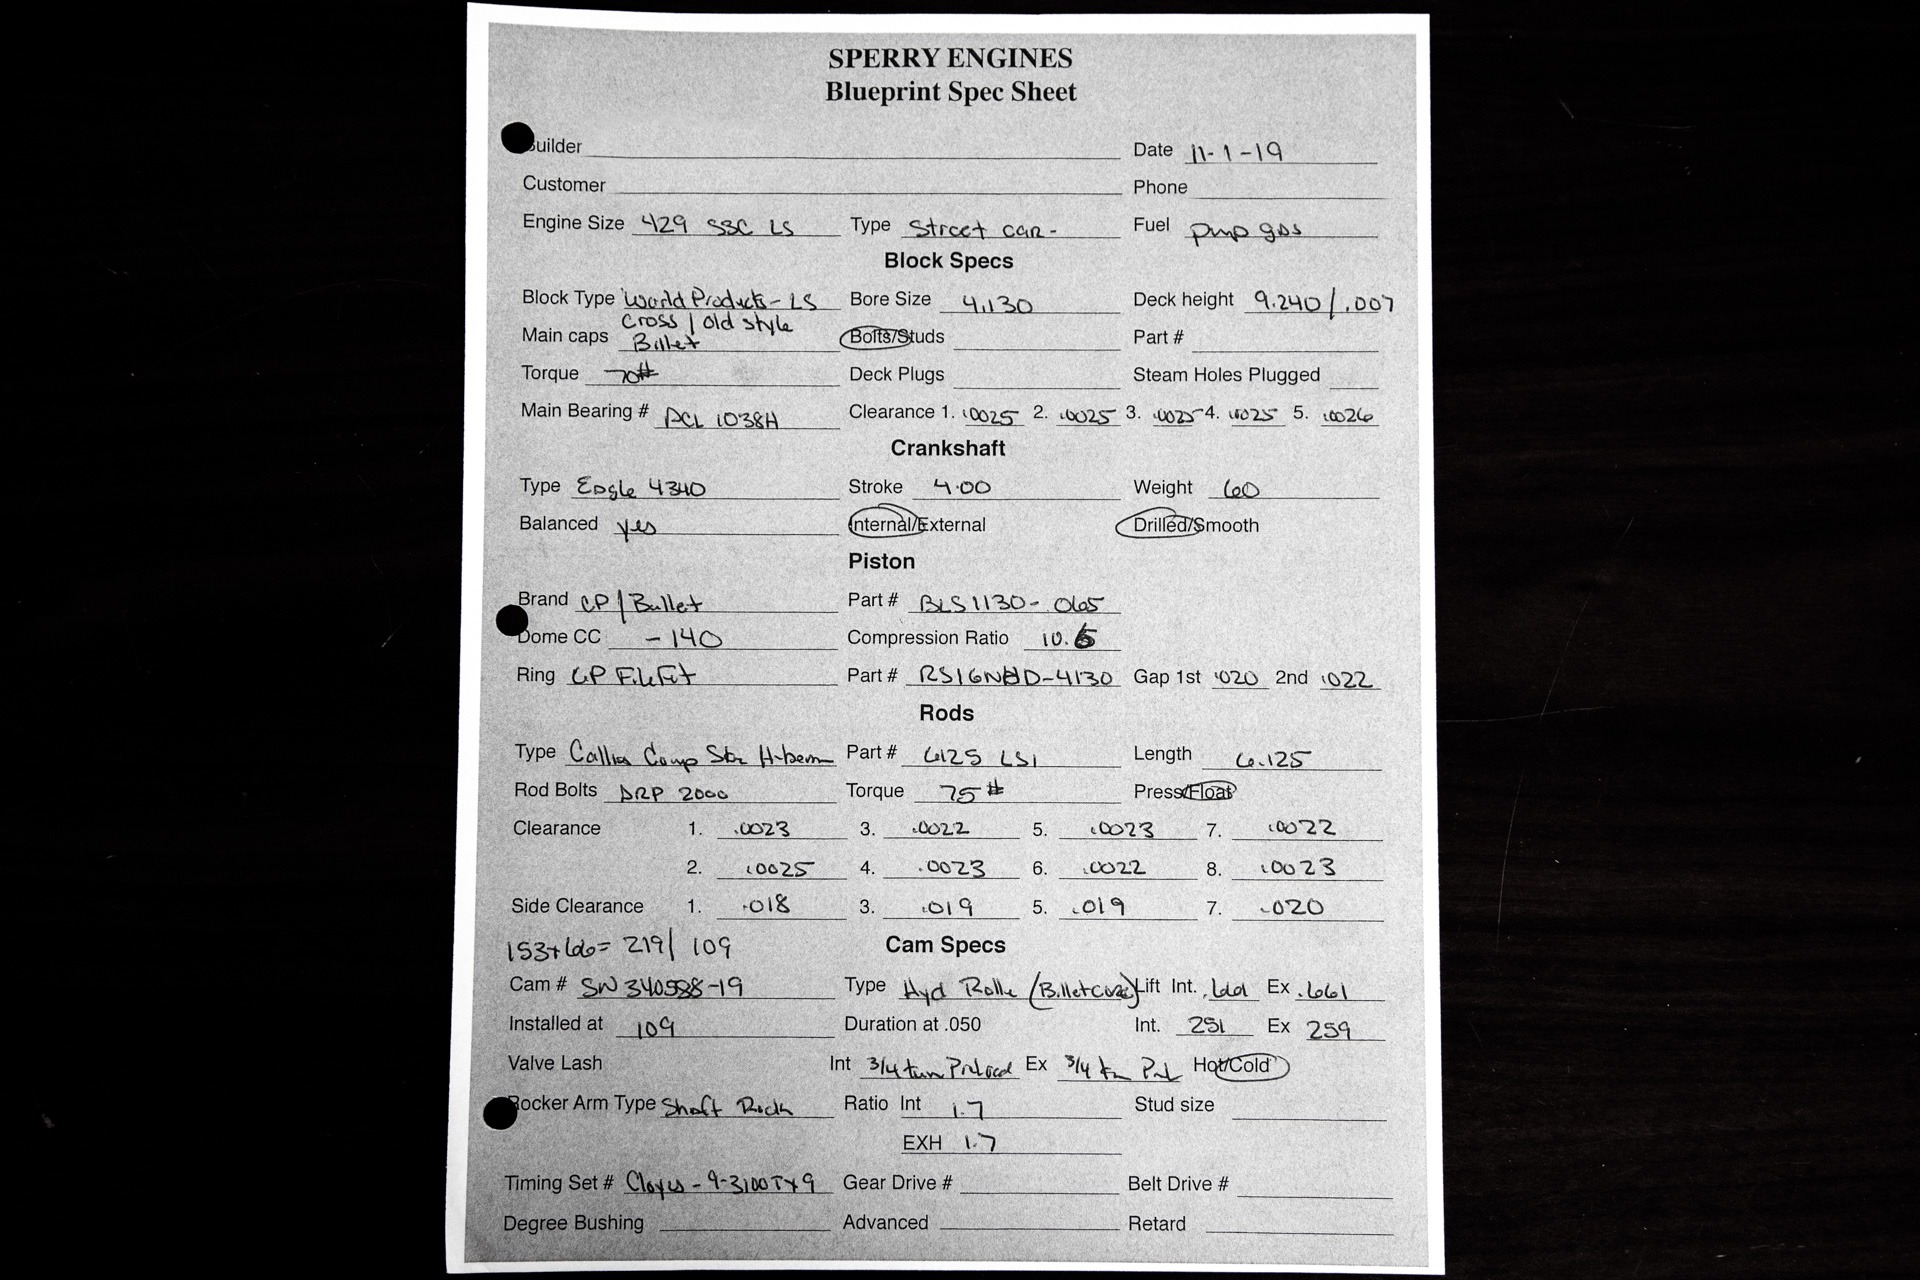 SPERRY ENGINES
Blueprint Spec Sheet
uilder Date 11-1-19
Customer Phone
Engine Size 429 SBC LS Type Street car- Fuel pump gas
Block Specs
Block Type World Products-LS Bore Size 4.130 Deck height 9.240/.007
Cross / old style
Main caps Billet Bolts/Studs Part #
Torque 70# Deck Plugs Steam Holes Plugged
Main Bearing # ACL 1038H Clearance 1. .0025 2. .0025 3. .0025 4. .0025 5. .0026
Crankshaft
Type Eagle 4340 Stroke 4.00 Weight 60
Balanced yes Internal/External Drilled/Smooth
Piston
Brand CP/Bullet Part # BLS1130-065
Dome CC -140 Compression Ratio 10.5
Ring CP File Fit Part # Gap 1st .020 2nd .022
Rods
Type Callies Comp Star H-beam Part # 6125 LS1 Length 6.125
Rod Bolts ARP 2000 Torque 75# Press/Float
Clearance 1. .0023 3. .0022 5. .0023 7. .0022
2. .0025 4. .0023 6. .0022 8. .0023
Side Clearance 1. .018 3. .019 5. .019 7. .020
153+66= 219/ 109 Cam Specs
Cam # SN Type Hyd Roller (Billet core) Lift Int. .661 Ex .661
Installed at 109 Duration at .050 Int. 251 Ex 259
Valve Lash Int 3/4 turn Preload Ex 3/4 Hot/Cold
Rocker Arm Type Shaft Rock Ratio Int 1.7 Stud size
EXH 1.7
Timing Set # Cloyes-9-3100TX9 Gear Drive # Belt Drive #
Degree Bushing Advanced Retard